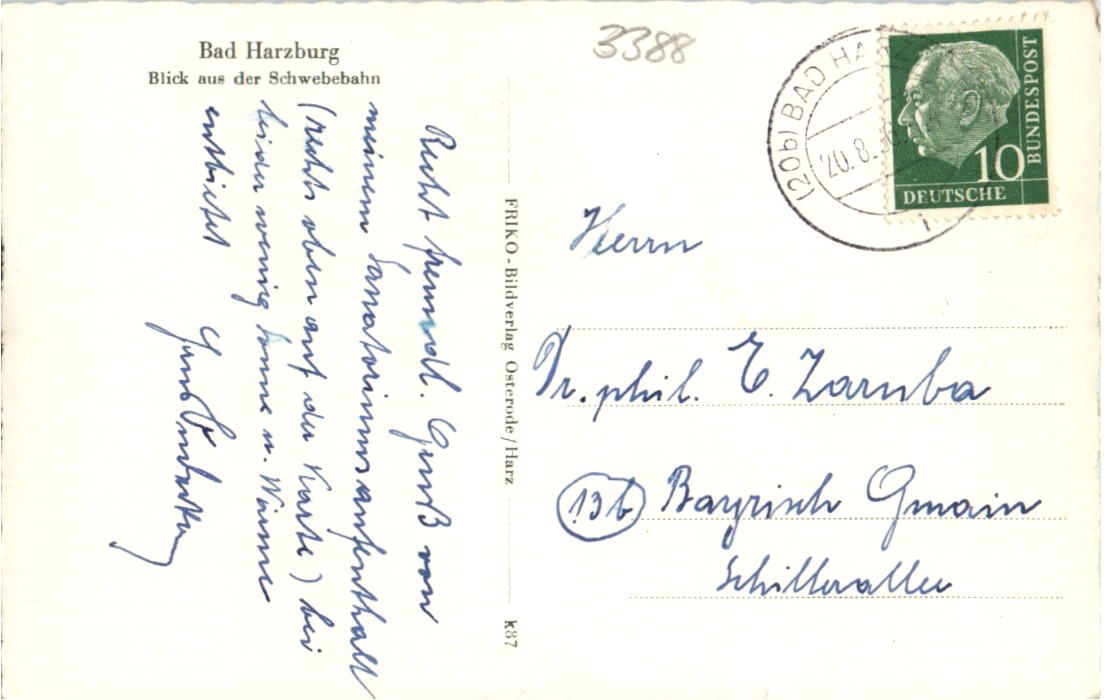 Bad Harzburg
Blick aus der Schwebebahn
3388
(20b) BAD HA
20.8.56
10
DEUTSCHE
BUNDESPOST
Recht freundl. Gruß von
meinem Sanatoriumsaufenthalt
(rechts oben auf der Karte) bei
leider wenig Sonne u. Wärme
entbietet
FRIKO-Bildverlag Osterode/Harz
k87
Herrn
Dr. phil. E. Zaruba
13b Bayrisch Gmain
Schillerallee